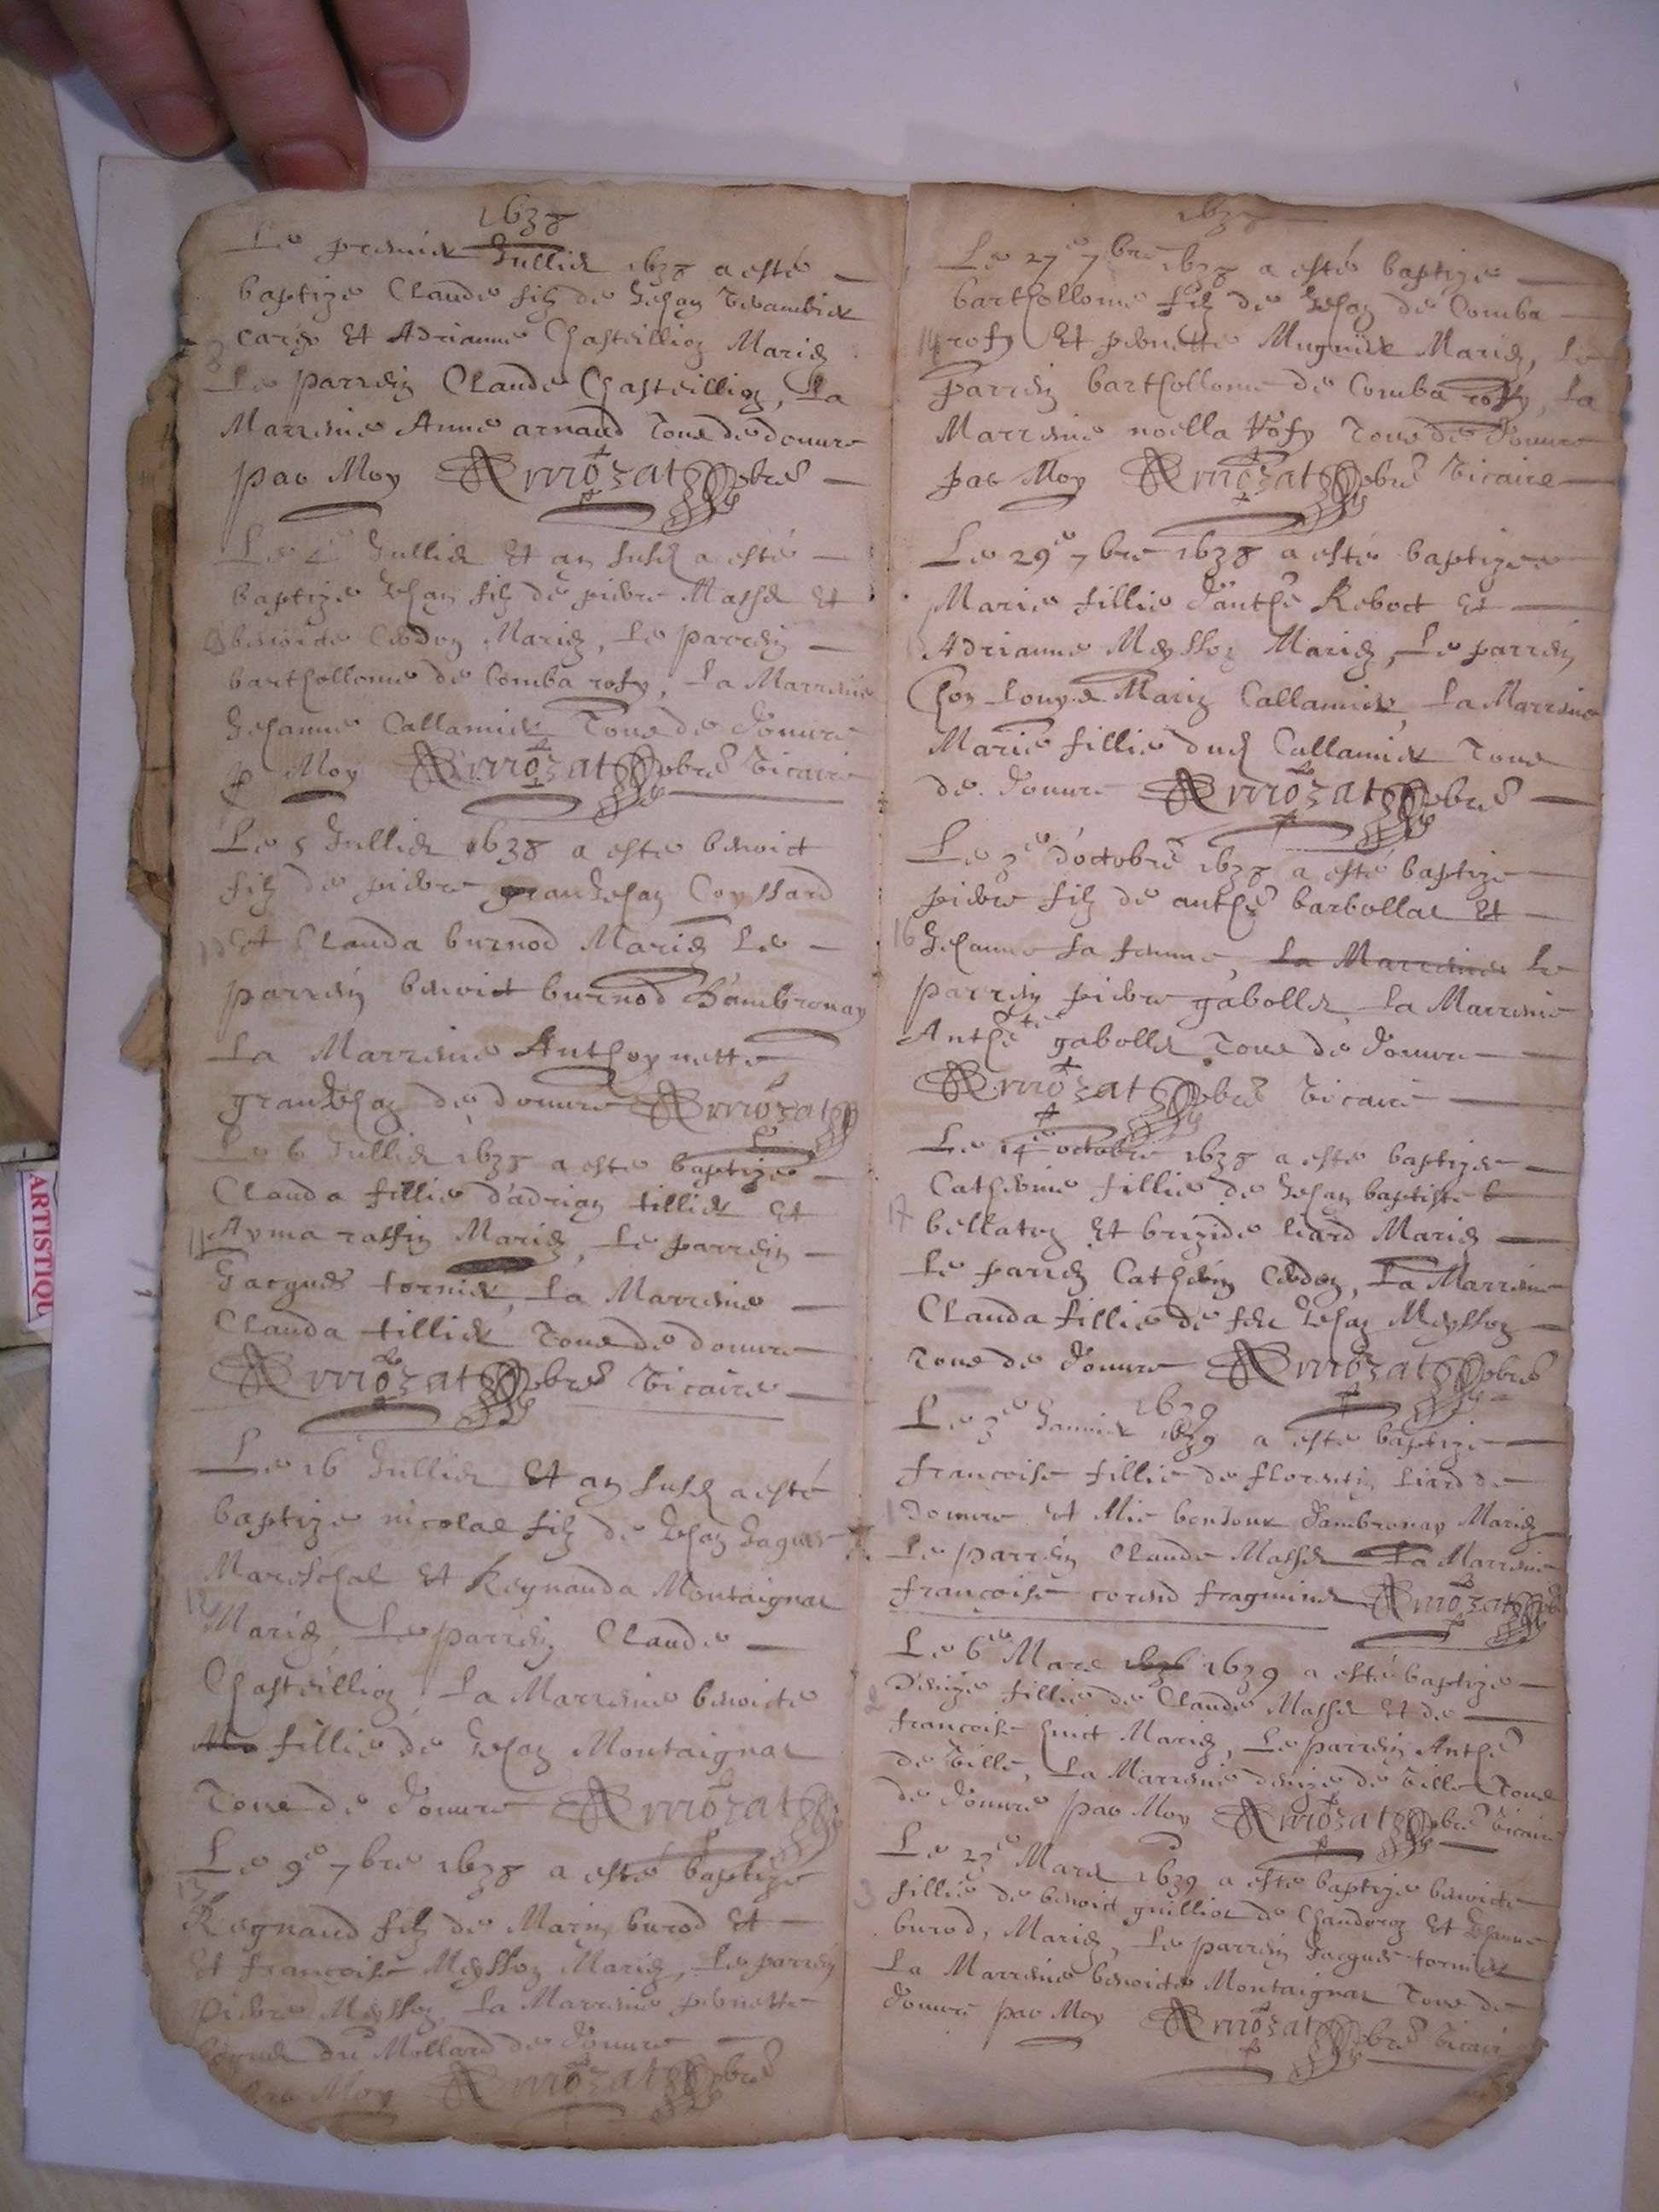 1638
Le premier Jullier 1638 a esté
baptize Claude filz de Jehan
Et Adrianne Chasteillion Mariez
8
Le parrein Claude Chasteillion, La
Marreine Anne arnaud Tous de douure
par Moy Armozat pbre
Le 2e Jullier Et an susd a esté
baptize Jehan filz de pierre Masse Et
9 benoicte Mariez, Le parrein
barthollome de Comba rosy, La Marreine
Jehanne Callamier Tous de douure
p Moy Armozat pbre Vicaire
Le 5 Jullier 1638 a este benoict
filz de pierre granJehan Coyssard
10 Et Clauda burnod Mariez Le
parrein benoict burnod d'ambronay
La Marreine Anthoynette
granJehan de douure Armozat
Le 6 Jullier 1638 a este baptize
Clauda fillie d'adrian tillier Et
11 Ayma rassin Mariez, Le parrein
Jacques tornier, La Marreine
Clauda tillier Tous de douure
Armozat pbre Vicaire
Le 16 Jullier Et an susd a esté
baptize nicolas filz de Jehan Jaques
Mareschal Et Reynauda Montaignat
12
Mariez, Le parrein Claude
Chasteillion, La Marreine benoicte
fillie de Jehan Montaignat
Tous de douure Armozat
Le 9e 7bre 1638 a esté baptizé
13
Reynaud filz de Marin burod Et
Et francoise Meysson Mariez, Le parrein
pierre Meysson, La Marreine pernette
du Mollard de douure
par Moy Armozat pbre
1638
Le 27e 7bre 1638 a esté baptize
barthollome filz de Jehan de Comba
14 rosy Et pernette Mugnier Mariez, Le
parrein barthollome de Comba rosy, La
Marreine noella rosy Tous de douure
par Moy Armozat pbre Vicaire
Le 29e 7bre 1638 a esté baptizee
Marie fillie d'anthe Reboct Et
Adrianne Meysson Mariez, Le parrein
Callamier, La Marreine
Marie fillie dud Callamier Tous
de douure Armozat pbre
Le 3e d'octobre 1638 a esté baptize
pierre filz de anthe barbollat Et
16 Jehanne sa femme, La Marreine Le
parrein pierre gabollet, La Marreine
Anthte gabollet Tous de douure
Armozat pbre Vicaire
Le 14e octobre 1638 a esté baptizee
Catherine fillie de Jehan baptiste b
17 bellaton Et brigide liard Mariez
Le parrein Catherin, La Marreine
Clauda fillie de feu Jehan Meysson
Tous de douure Armozat pbre
1639
Le 3e Janvier 1639 a esté baptize
francoise fillie de florentin liard de
1 douure et d'ambronay Mariez
Le parrein Claude Masse La Marreine
francoise Armozat pbre
Le 6e Mars 1639 a esté baptize
2 Denize fillie de Claude Masse Et de
francoise huict Mariez, Le parrein Anthe
de Ville, La Marreine denize de Ville Tous
de douure par Moy Armozat pbre Vicaire
Le 23e Mars 1639 a esté baptize benoicte
3 fillie de benoict guilliot de Et Jehanne
burod, Mariez, Le parrein Jacques tornier
La Marreine benoicte Montaignat Tous de
douure par Moy Armozat pbre Vicaire
ARTISTIQU